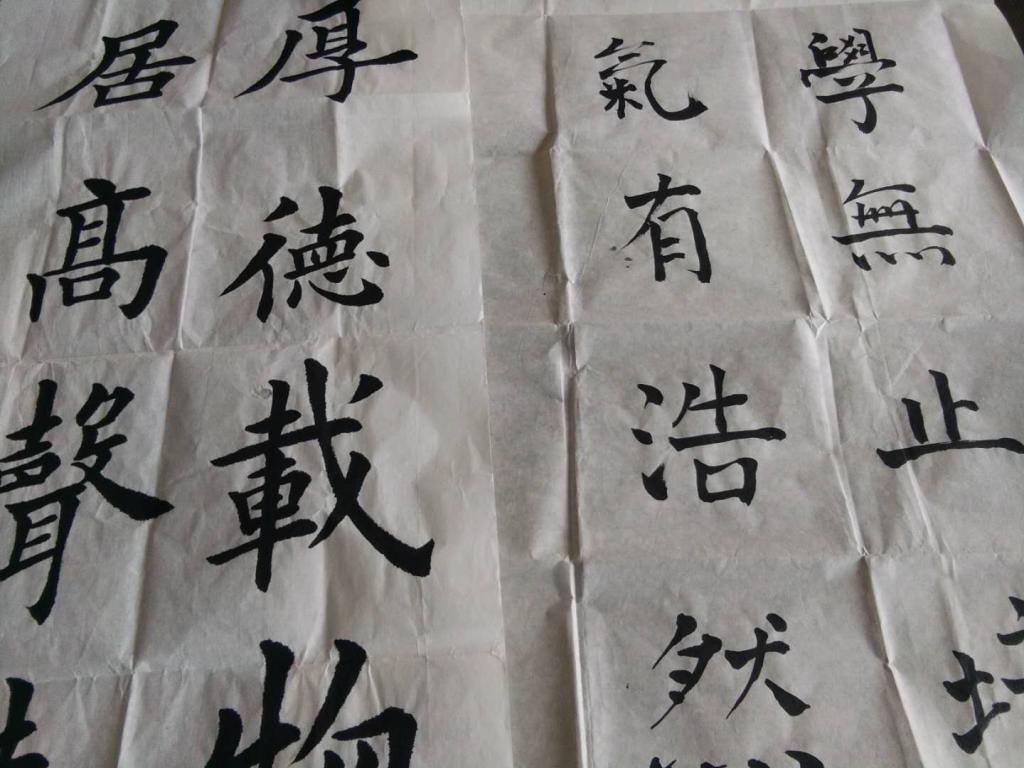 學無止
氣有浩然
厚德載物
居高聲